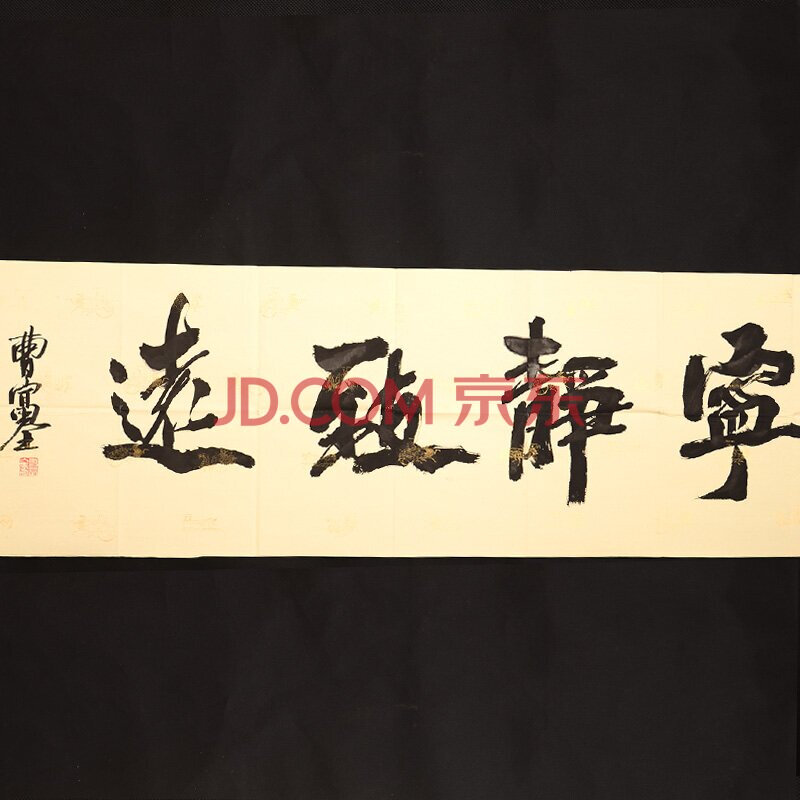 寧靜致遠
曹富奎
JD.COM 京东